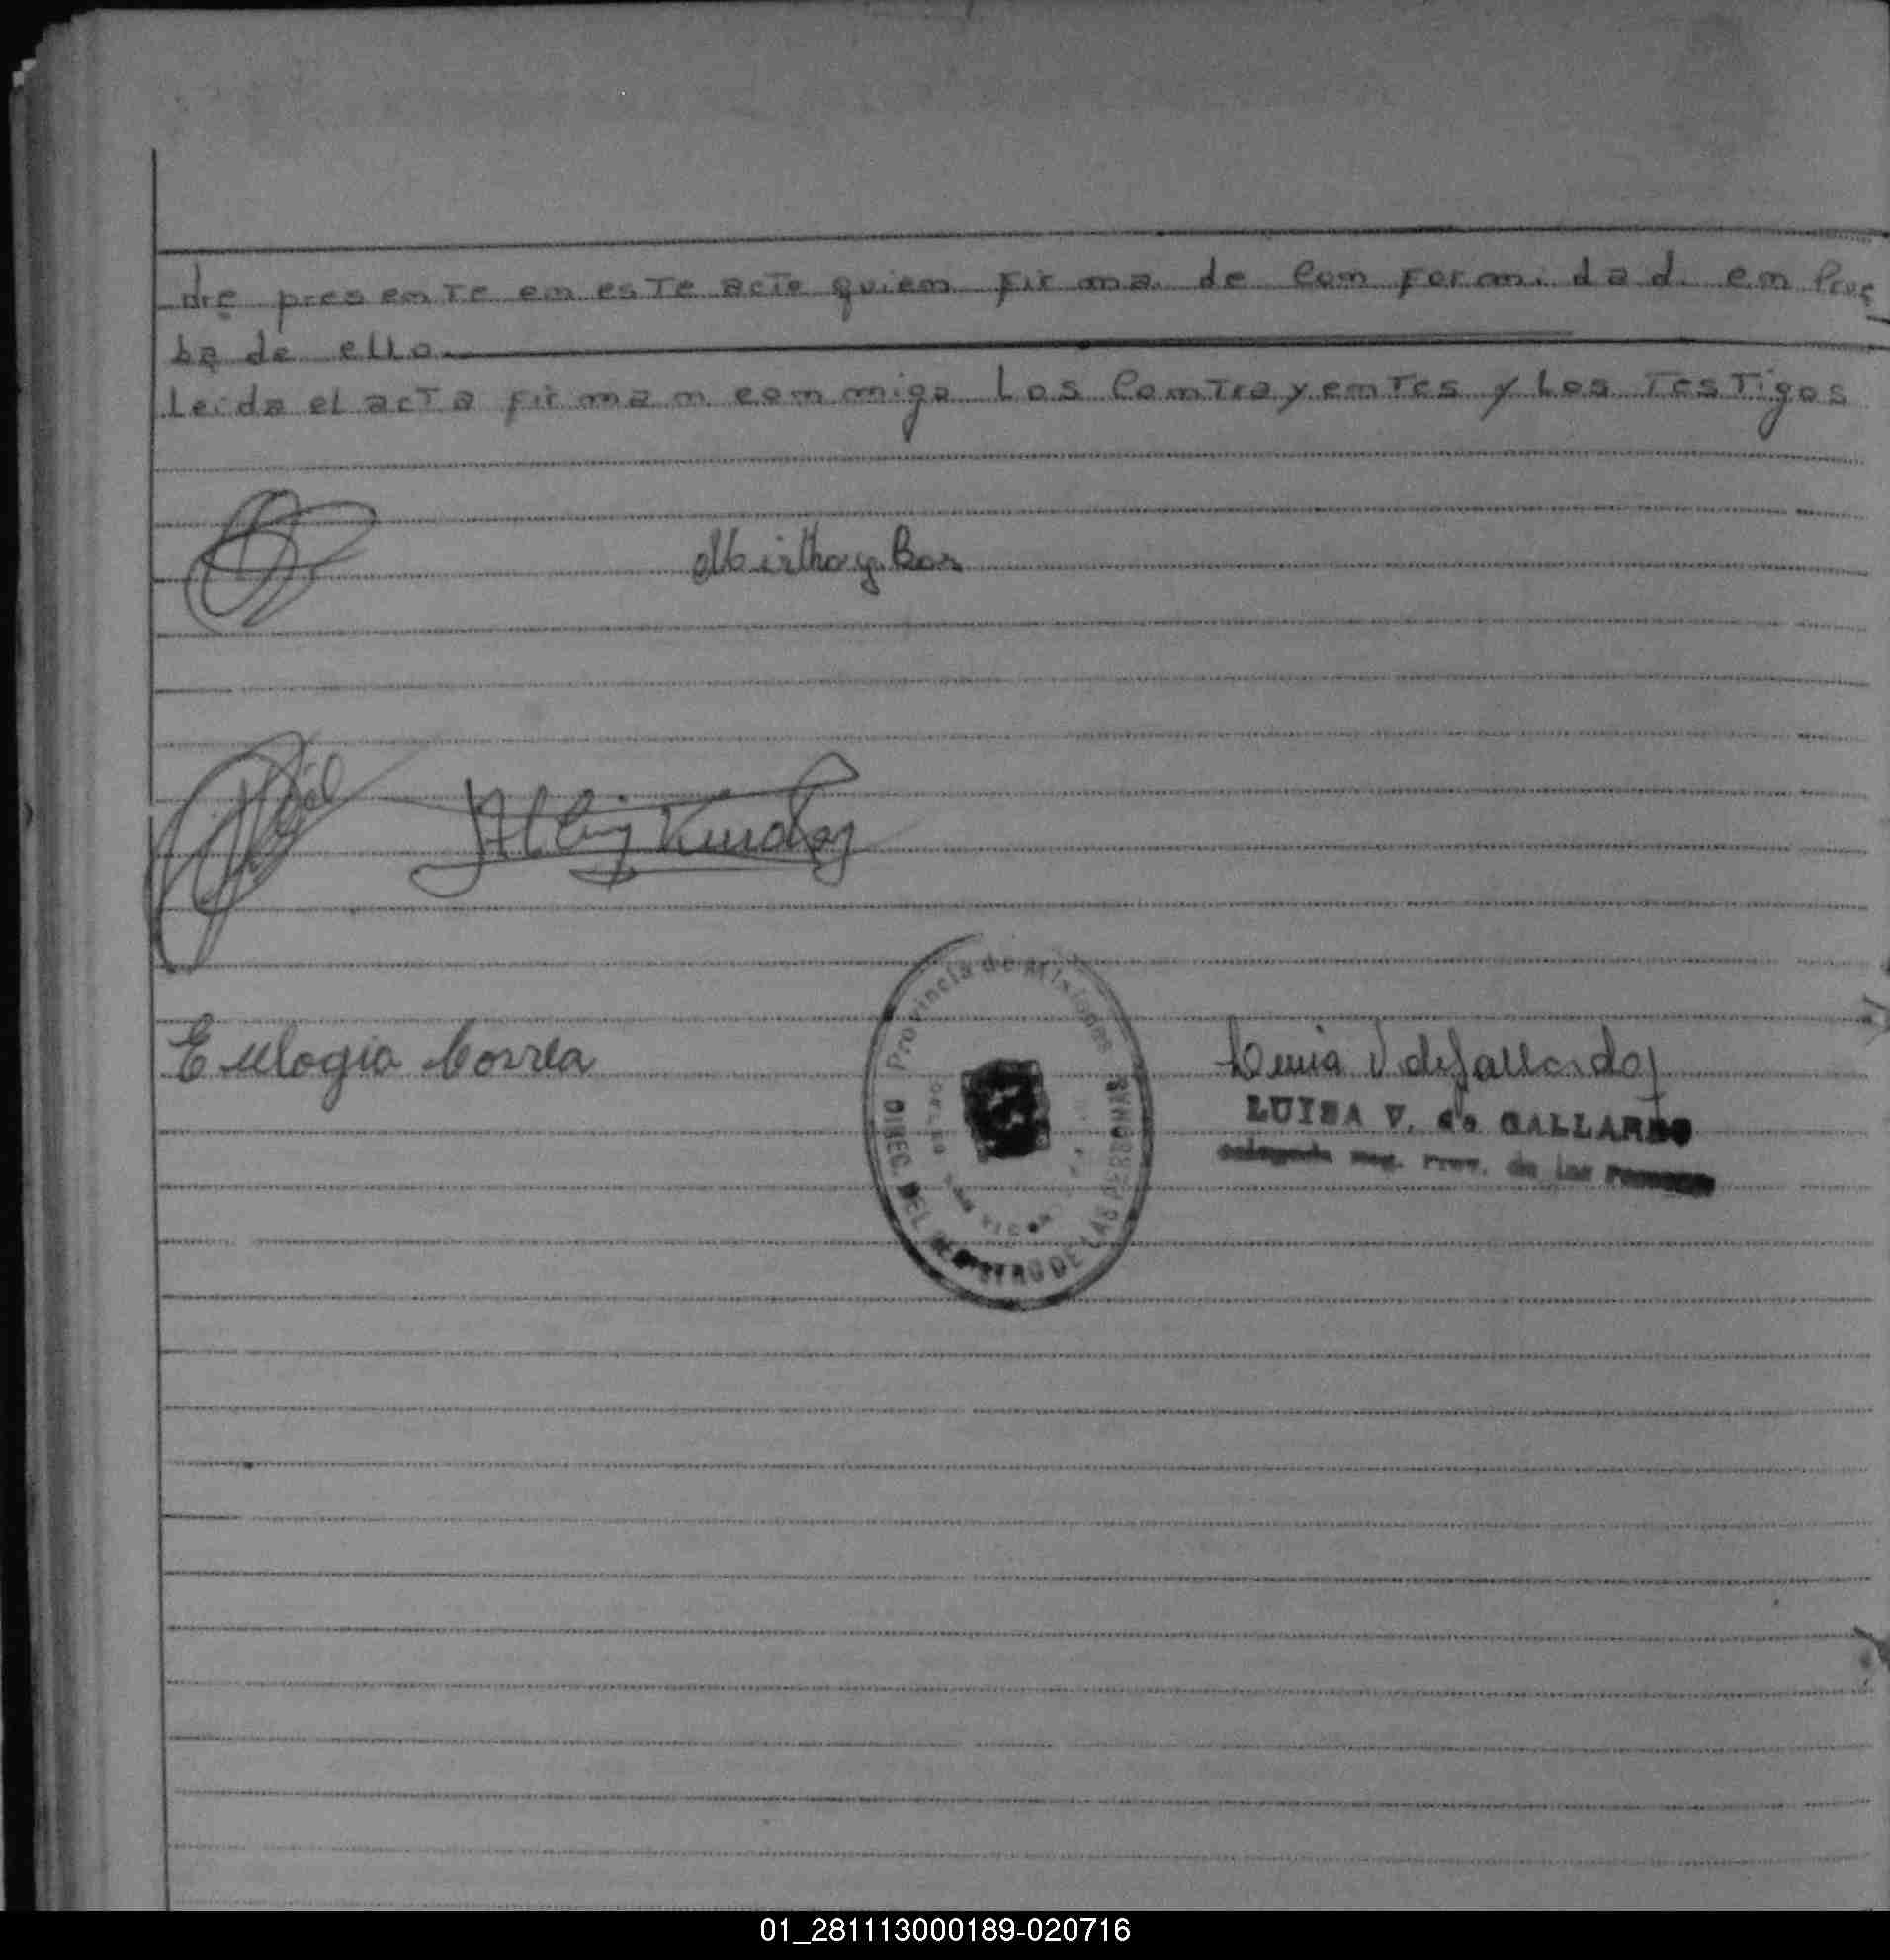 dre presente en este acto quien firma de Conformidad en Prue
ba de ello
Leida el acta firman conmigo Los Contrayentes y Los Testigos
Mirtha y Bar
Albin
Eulogia Correa
Provincia de Misiones
DIREC. DEL REGISTRO DE LAS PERSONAS
Luisa V de Gallardo
LUISA V. de GALLARDO
Delegada Reg. Prov. de las Personas
01_281113000189-020716